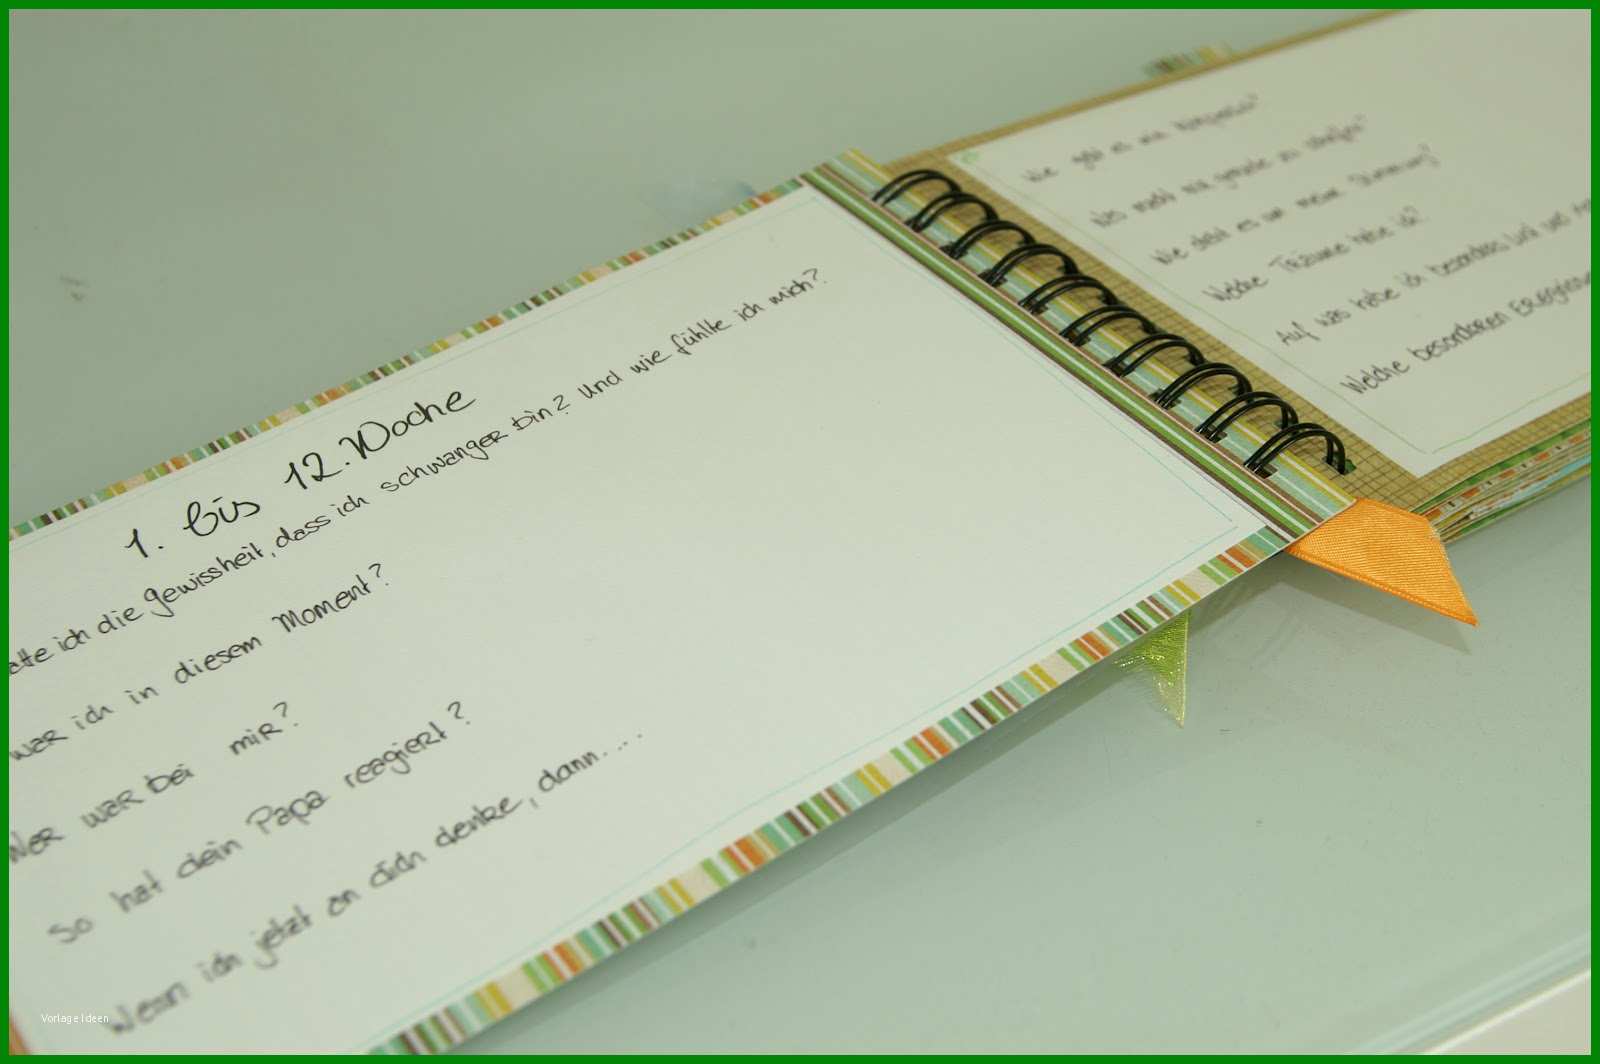 1. bis 12. Woche
atte ich die gewissheit, dass ich schwanger bin? Und wie fühlte ich mich?
war ich in diesem Moment?
Wer war bei mir?
So hat dein Papa reagiert?
Wenn ich jetzt an dich denke, dann....
Wie geht es mir körperlich?
Was macht mir gerade zu schaffen?
Wie steht es um meine Stimmung?
Welche Träume habe ich?
Auf was habe ich besonders Lust und
Welche besonderen Ereignisse
Vorlage Ideen